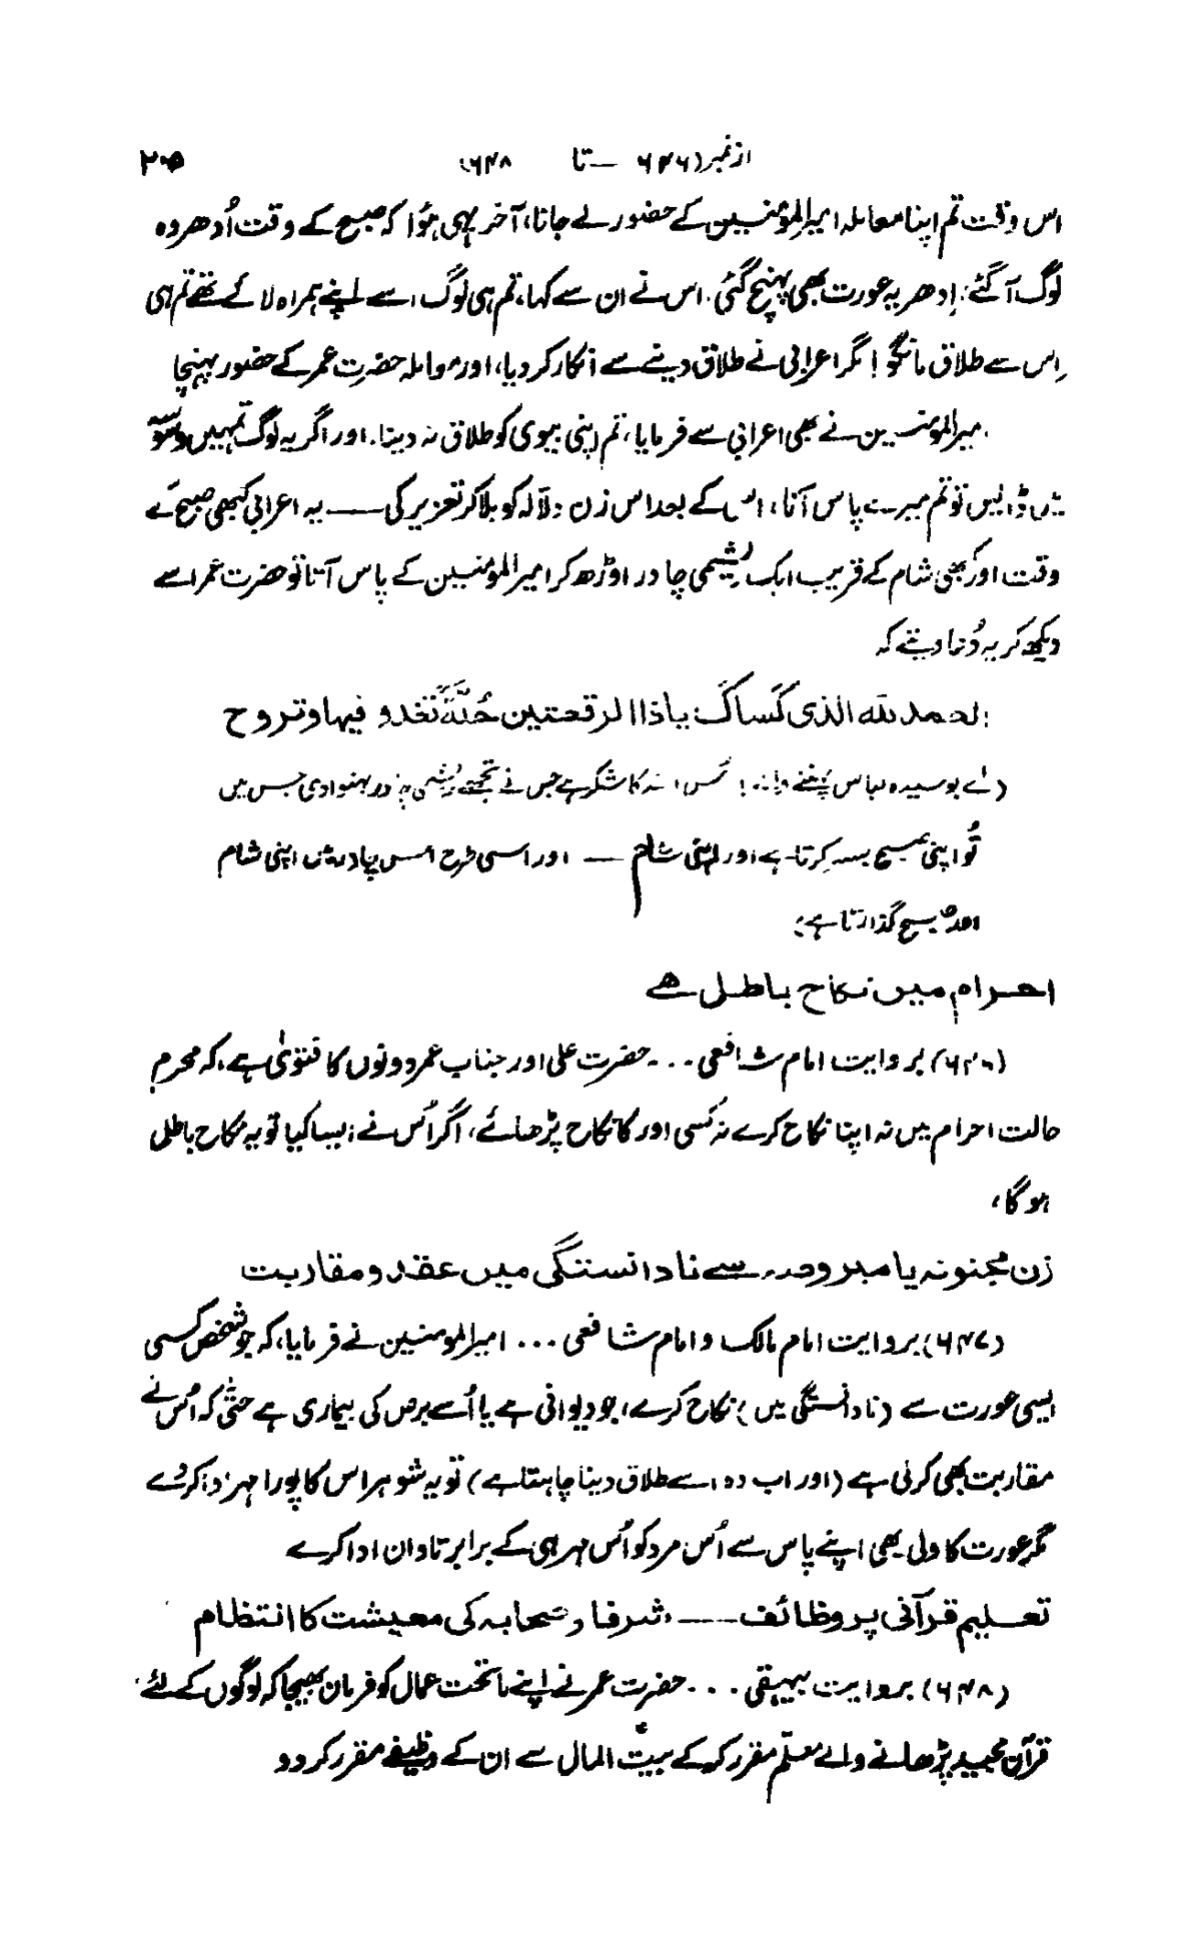 از نمبر (۶۴۶ — تا ۶۴۸) ۲۰۵
اس وقت تم اپنا معاملہ امیرالمؤمنین کے حضور لے جانا، آخر یہی ہؤا کہ صبح کے وقت اُدھر وہ
لوگ آ گئے، اِدھر یہ عورت بھی پہنچ گئی. اس نے ان سے کہا، تم ہی لوگ اسے اپنے ہمراہ لا کے تھے تم ہی
اِس سے طلاق مانگو! مگر اعرابی نے طلاق دینے سے انکار کر دیا، اور معاملہ حضرت عمر کے حضور پہنچا
امیرالمؤمنین نے بھی اعرابی سے فرمایا، تم اپنی بیوی کو طلاق نہ دینا. اور اگر یہ لوگ تمہیں وسوسہ
میں ڈالیں تو تم میرے پاس آنا، اس کے بعد اس زن دلّالہ کو بلا کر تعزیر کی — یہ اعرابی کبھی صبح کے
وقت اور کبھی شام کے قریب ایک ریشیمی چادر اوڑھ کر امیرالمؤمنین کے پاس آتا تو حضرت عمر اسے
دیکھ کر یہ دُعا دیتے کہ
الحمد للہ الذی کَساکَ یا ذا الرقعتین حُلَّةً تغدو فیھا وتروح
(اے بوسیدہ لباس پہننے والے! اس اللہ کا شکر ہے جس نے تجھے ریشمی چادر پہنوا دی جس میں
تُو اپنی صبح بسر کرتا ہے اور اپنی شام — اور اسی طرح اس چادر میں اپنی شام
اور صبح گذارتا ہے)
احرام میں نکاح باطل ہے
(۶۴۶) بروایت امام شافعی ... حضرت علی اور جناب عمر دونوں کا فتویٰ ہے، کہ محرم
حالت احرام میں نہ اپنا نکاح کرے نہ کسی اور کا نکاح پڑھائے، اگر اُس نے ایسا کیا تو یہ نکاح باطل
ہو گا،
زن مجنونہ یا مبروصہ سے نادانستگی میں عقد و مقاربت
(۶۴۷) بروایت امام مالک و امام شافعی ... امیرالمومنین نے فرمایا، کہ جو شخص کسی
ایسی عورت سے (نادانستگی میں) نکاح کرے، جو دیوانی ہے یا اُسے برص کی بیماری ہے حتّٰی کہ اُس نے
مقاربت بھی کر لی ہے (اور اب وہ اسے طلاق دینا چاہتا ہے) تو یہ شوہر اس کا پورا مہر ادا کر دے
مگر عورت کا ولی بھی اپنے پاس سے اُس مرد کو اُس مہر ہی کے برابر تاوان ادا کرے
تعلیم قرآنی پر وظائف — شرفا و صحابہ کی معیشت کا انتظام
(۶۴۸) بروایت بیہقی ... حضرت عمر نے اپنے ماتحت عمال کو فرمان بھیجا کہ لوگوں کے لئے
قرآن مجید پڑھانے والے معلّم مقرر کر کے بیت المال سے ان کے وظیفے مقرر کر دو